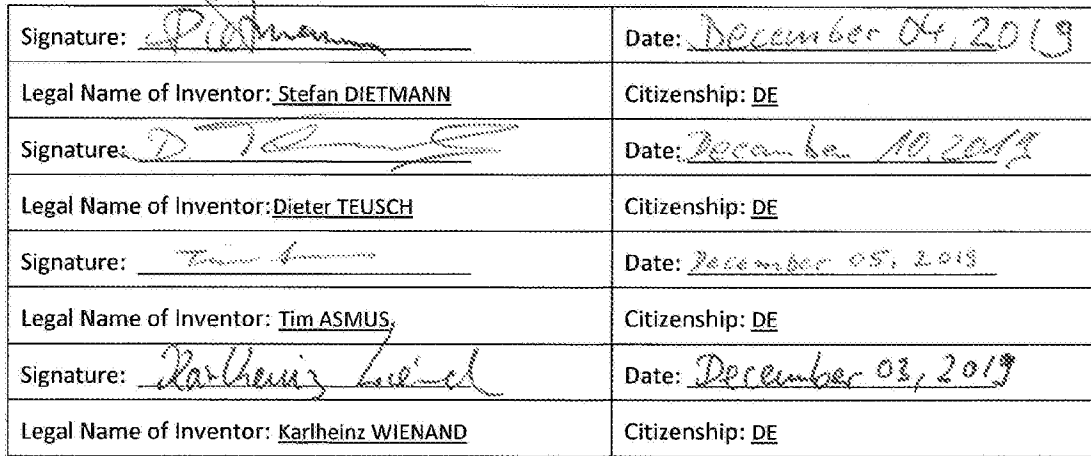 Signature: Date: December 04, 2019
Legal Name of Inventor: Stefan DIETMANN Citizenship: DE
Signature: D. Date: December 10, 2019
Legal Name of Inventor: Dieter TEUSCH Citizenship: DE
Signature: Tim Date: December 05, 2019
Legal Name of Inventor: Tim ASMUS Citizenship: DE
Signature: Karlheinz Wienand Date: December 03, 2019
Legal Name of Inventor: Karlheinz WIENAND Citizenship: DE